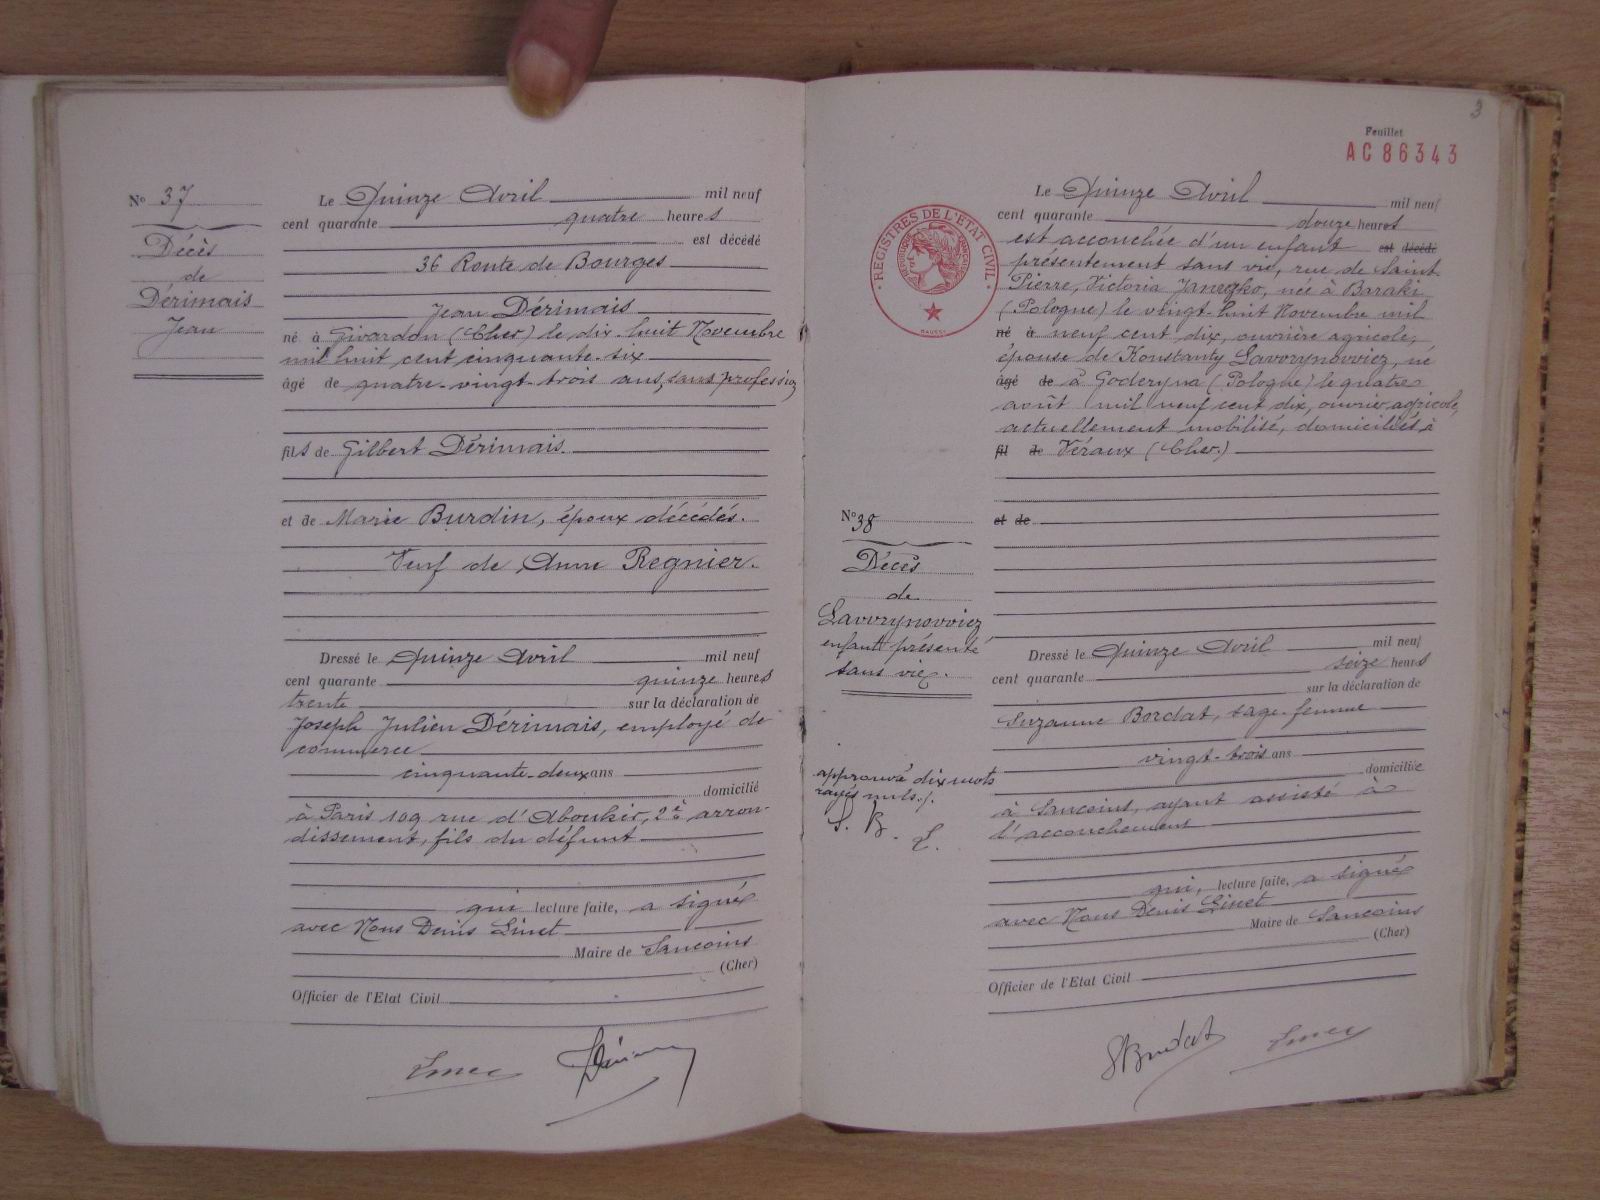 Nº 37
Décès
de
Dérimais
Jean
Le Quinze Avril mil neuf
cent quarante quatre heures
est décédé
36 Route de Bourges
Jean Dérimais
né à Givardon (Cher) le dix-huit Novembre
mil huit cent cinquante-six
âgé de quatre-vingt-trois ans, sans profession
fils de Gilbert Dérimais.
et de Marie Burdin, époux décédés.
Veuf de Anne Regnier.
Dressé le Quinze Avril mil neuf
cent quarante quinze heures
trente sur la déclaration de
Joseph Julien Dérimais, employé de
commerce
cinquante-deux ans
domicilié
à Paris 109 rue d'Aboukir, 2è arron-
dissement, fils du défunt
qui lecture faite, a signé
avec Nous Denis Linet
Maire de Sancoins
(Cher)
Officier de l'Etat Civil
3
Feuillet
AC 86343
REGISTRES DE L'ETAT CIVIL
REPUBLIQUE FRANÇAISE
Le Quinze Avril mil neuf
cent quarante douze heures
est accouchée d'un enfant est décédé
présentement sans vie, rue de Saint
Pierre, Victoria Janezko, née à Baraki
(Pologne) le vingt-huit Novembre mil
né à neuf cent dix, ouvrière agricole,
épouse de Konstanty Lavvrynovviez, né
âgé de à Goderyna (Pologne) le quatre
août mil neuf cent dix, ouvrier agricole,
actuellement mobilisé, domiciliés à
fil de Véraux (Cher)
et de
Nº 38
Décès
de
Lavvrynovviez
enfant présenté
sans vie.
Dressé le Quinze Avril mil neuf
cent quarante seize heures
sur la déclaration de
Suzanne Bordat, sage-femme
vingt-trois ans
domiciliée
à Sancoins, ayant assisté à
l'accouchement
approuvé dix mots
rayés nuls./.
S. B. L.
qui, lecture faite, a signé
avec Nous Denis Linet
Maire de Sancoins
(Cher)
Officier de l'Etat Civil
SBordat